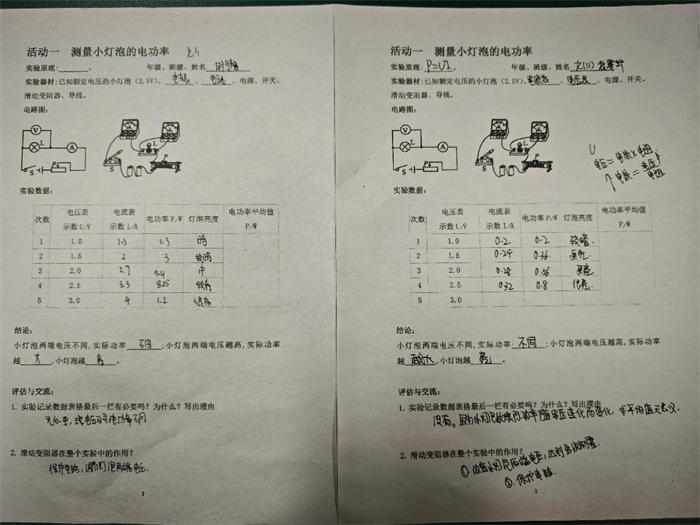 活动一 测量小灯泡的电功率
实验原理:______。 年级、班级、姓名
实验器材:已知额定电压的小灯泡(2.5V)、电流表、电压表、电源、开关、
滑动变阻器、导线。
电路图:
V
L
A
S
L
S
实验数据:
次数 电压表示数U/V 电流表示数I/A 电功率P/W 灯泡亮度 电功率平均值P/W
1 1.0 1.3 1.3 暗
2 1.5 2 3
3 2.0 2.7 5.4 中
4 2.5 3.3 8.25
5 3.0 4 1.2
结论:
小灯泡两端电压不同,实际功率 不同 ;小灯泡两端电压越高,实际功率
越 大 ,小灯泡越 亮 。
评估与交流:
1. 实验记录数据表格最后一栏有必要吗?为什么?写出理由
2. 滑动变阻器在整个实验中的作用?
保护电路,
1
活动一 测量小灯泡的电功率
实验原理:P=UI 年级、班级、姓名
实验器材:已知额定电压的小灯泡(2.5V)、电流表、电压表、电源、开关、
滑动变阻器、导线。
电路图:
V
L
A
S
L
S
U
电压=电流×电阻
实验数据:
次数 电压表示数U/V 电流表示数I/A 电功率P/W 灯泡亮度 电功率平均值P/W
1 1.0 0.2 0.2 较暗
2 1.5 0.24 0.36
3 2.0 0.28 0.56
4 2.5 0.32 0.8
5 3.0
结论:
小灯泡两端电压不同,实际功率 不同 ;小灯泡两端电压越高,实际功率
越 越大 ,小灯泡越 亮 。
评估与交流:
1. 实验记录数据表格最后一栏有必要吗?为什么?写出理由
没有。因为小灯泡的实际功率随电压变化而变化 求平均值无意义
2. 滑动变阻器在整个实验中的作用?
② 保护电路
2